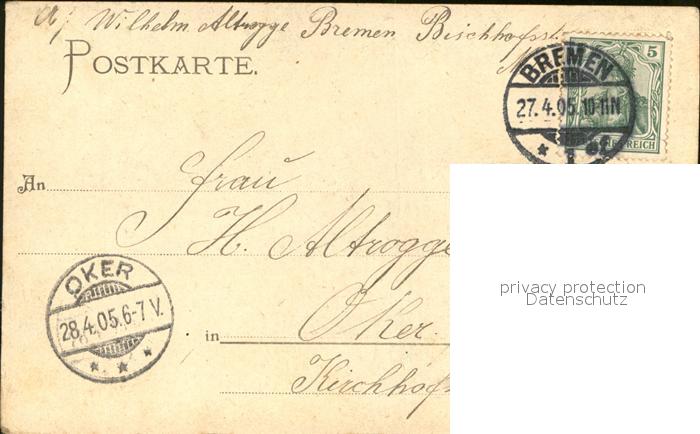 Wilhelm Altrogge Bremen Bischhofsst
POSTKARTE.
BREMEN
5
27.4.05. 10-11N
REICH
An Frau
H. Altrogge
OKER
28.4.05. 6-7 V.
in Oker.
Kirchhofs
privacy protection
Datenschutz